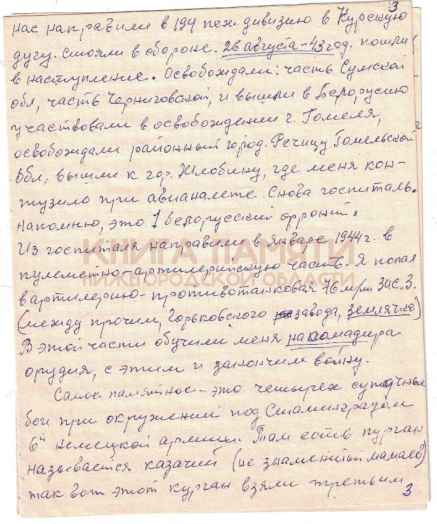 3
нас направили в 194 пех. дивизию в Курскую
дугу. Стояли в обороне. 26 августа-43 год. пошли
в наступление. Освобождали: часть Сумской
обл, часть Черниговской, и вышли в Белорусию
участвовали в освобождении г. Гомеля,
освобождали районный город. Речицу Гомельской
обл, вышли к гор. Жлобину, где меня кон-
тузило при авианалете. Снова госпиталь.
Напомню, это 1 Белорусский фронт.
Из госпиталя направили в январе 1944г. в
пулеметно-артилерийскую часть. Я попал
в артилерию-противотанковая 76 м/м ЗИС.3.
(между прочим, Горьковского завода, землячка)
В этой части обучили меня на командира
орудия, с этим и закончил войну.
Самое памятное-это четырех суточные
бои при окружении под Сталинградом
6й немецкой армии. Там есть курган
называется казачий (не знаменитый мамаев)
так вот этот курган взяли третьим
3
КНИГА ПАМЯТИ
НИЖЕГОРОДСКОЙ ОБЛАСТИ